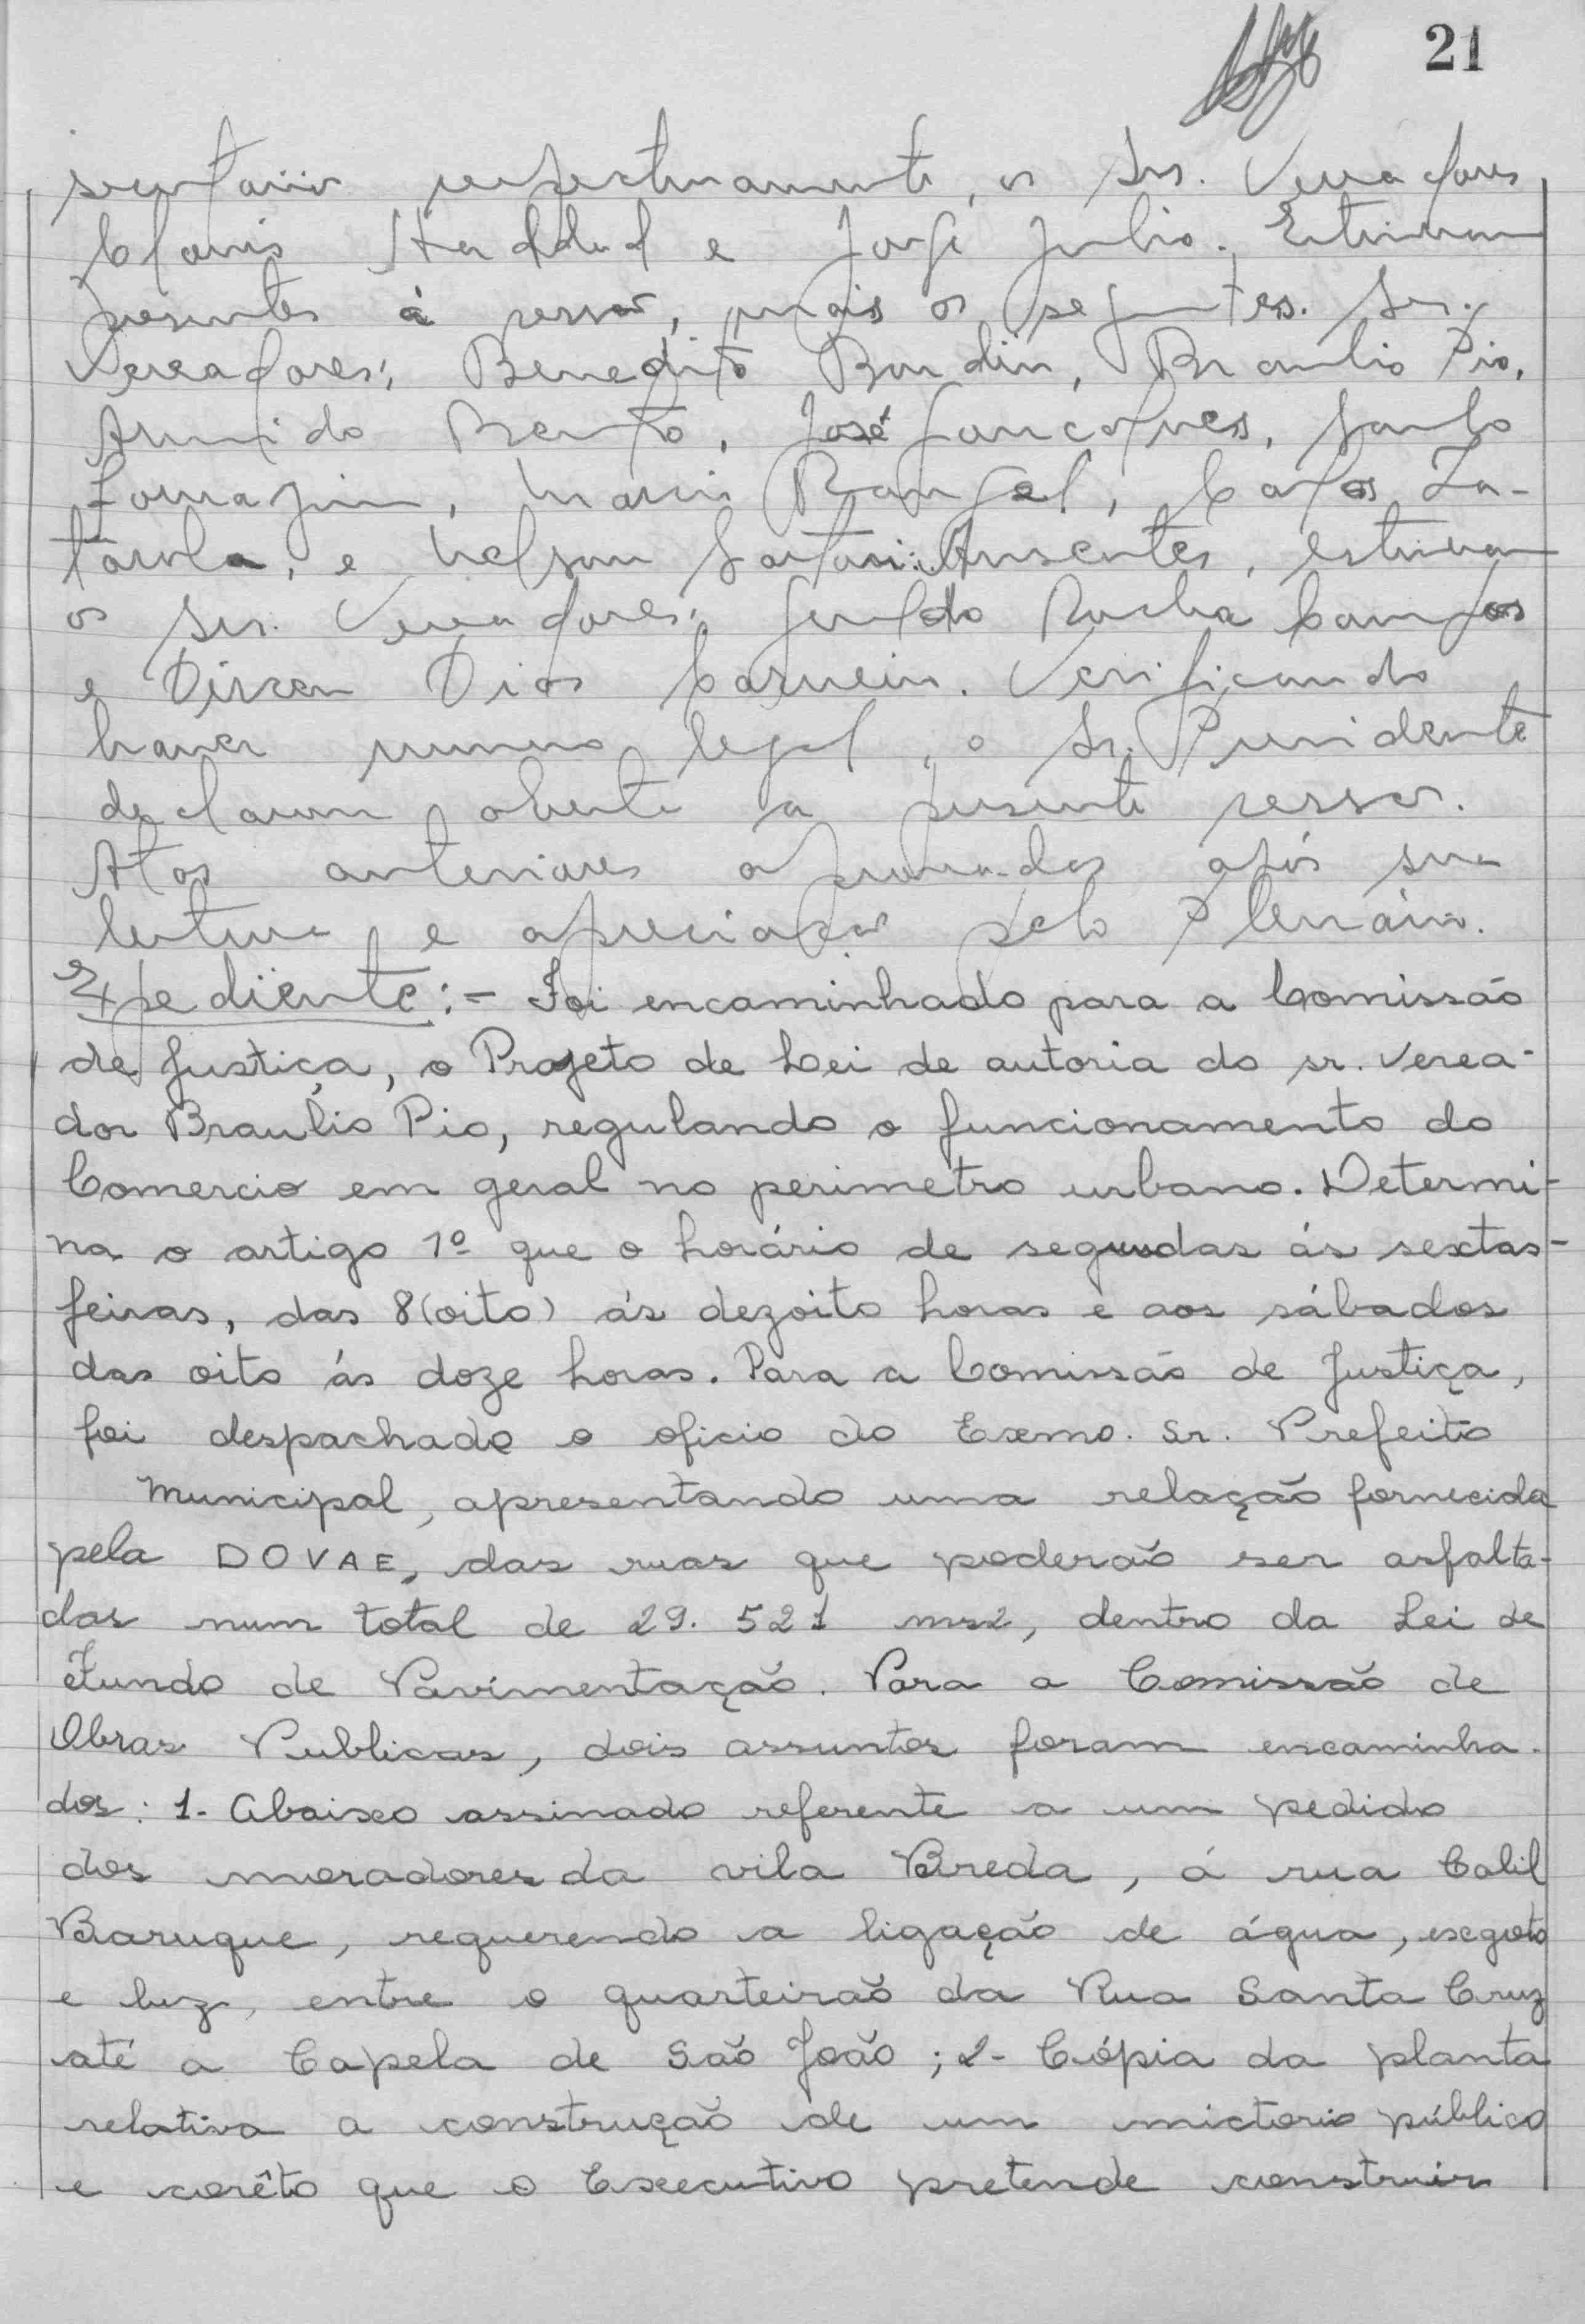 21
secretário respectivamente, os Srs. Vereadores
Clovis Haddad e Jorge Julio. Estiveram
presentes á sessão, mais os seguintes. Srs.
Vereadores: Benedito Bondin, Braulio Pio,
Armindo Bento, José Goncalves, Santo
, Mario Rangel, Carlos Za-
tarola, e Nelson Sartori. Ausentes, estiveram
os Srs. Vereadores, Geraldo Rocha Campos
e Dirceu Dias Carneiro. Verificando
haver numero legal, o Sr. Presidente
declarou aberta a presente sessão.
Atas anteriores aprovadas após sua
leitura e apreciação pelo Plenário.
Expediente:- Foi encaminhado para a Comissão
de Justiça, o Projeto de Lei de autoria do sr. verea-
dor Braulio Pio, regulando o funcionamento do
Comercio em geral no perimetro urbano. Determi-
na o artigo 1º que o horário de segundas ás sextas-
feiras, das 8(oito) ás dezoito horas e aos sábados
das oito ás doze horas. Para a Comissão de Justiça,
foi despachado o oficio do Exmo. Sr. Prefeito
Municipal, apresentando uma relação fornecida
pela DOVAE, das ruas que poderão ser asfalta-
das num total de 29.521 ms2, dentro da Lei de
Fundo de Pavimentação. Para a Comissão de
Obras Publicas, dois assuntos foram encaminha-
dos: 1- Abaixo assinado referente a um pedido
dos moradores da vila Breda, á rua Calil
Baruque, requerendo a ligação de água, esgoto
e luz, entre o quarteirão da Rua Santa Cruz
até a Capela de São João; 2- Cópia da planta
relativa a construção de um mictorio público
e corêto que o Executivo pretende construir